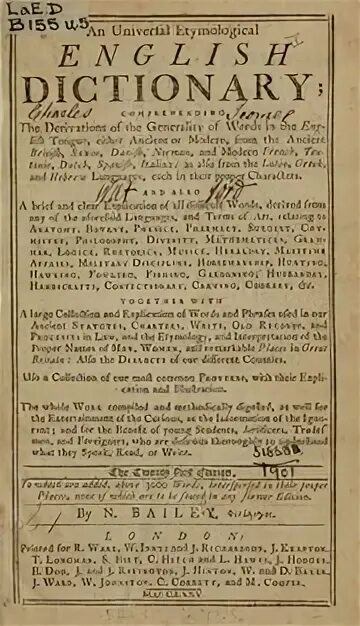 LaE.D
B155 u.5
An Universal Etymological
ENGLISH
DICTIONARY;
Charles COMPREHENDING
The Derivations of the Generality of Words in the Eng-
lish Tongue, either Ancient or Modern, from the Ancient
British, Saxon, Danish, Norman, and Modern French, Teu-
tonic, Dutch, Spanish, Italian; as also from the Latin, Greek,
and Hebrew Languages, each in their proper Characters.
AND ALSO
A brief and clear Explication of all difficult Words, derived from
any of the aforesaid Languages, and Terms of Art, relating to
ANATOMY, BOTANY, PHYSICK, PHARMACY, SURGERY, CHY-
MISTRY, PHILOSOPHY, DIVINITY, MATHEMATICKS, GRAM-
MAR, LOGICK, RHETORICK, MUSICK, HERALDRY, MARITIME
AFFAIRS, MILITARY DISCIPLINE, HORSEMANSHIP, HUNTING,
HAWKING, FOWLING, FISHING, GARDENING, HUSBANDRY,
HANDICRAFTS, CONFECTIONARY, CARVING, COOKERY, &c.
TOGETHER WITH
A large Collection and Explication of Words and Phrases used in our
Ancient STATUTES, CHARTERS, WRITS, OLD RECORDS, and
PROCESSES in LAW; and the Etymology, and Interpretation of the
Proper Names of MEN, WOMEN, and remarkable Places in Great
Britain: Also the DIALECTS of our different Counties.
Also a Collection of our most common PROVERBS, with their Expli-
cation and Illustration.
The whole WORK compiled and methodically digested, as well for
the Entertainment of the Curious, as the Information of the Igno-
rant; and for the Benefit of young Students, Artificers, Trades-
men, and Foreigners, who are desirous thoroughly to understand
what they Speak, Read, or Write.
1901
To which are added, above
By N. BAILEY,
LONDON:
Printed for R. WARE, W. INNYS and J. RICHARDSON, J. KNAPTON,
T. LONGMAN, S. BIRT, C. HITCH and L. HAWES, J. HODGES,
B. DOD, J. and J. RIVINGTON, J. HINTON, W. and D. BAKER,
J. WARD, W. JOHNSTON, C. CORBETT, and M. COOPER.